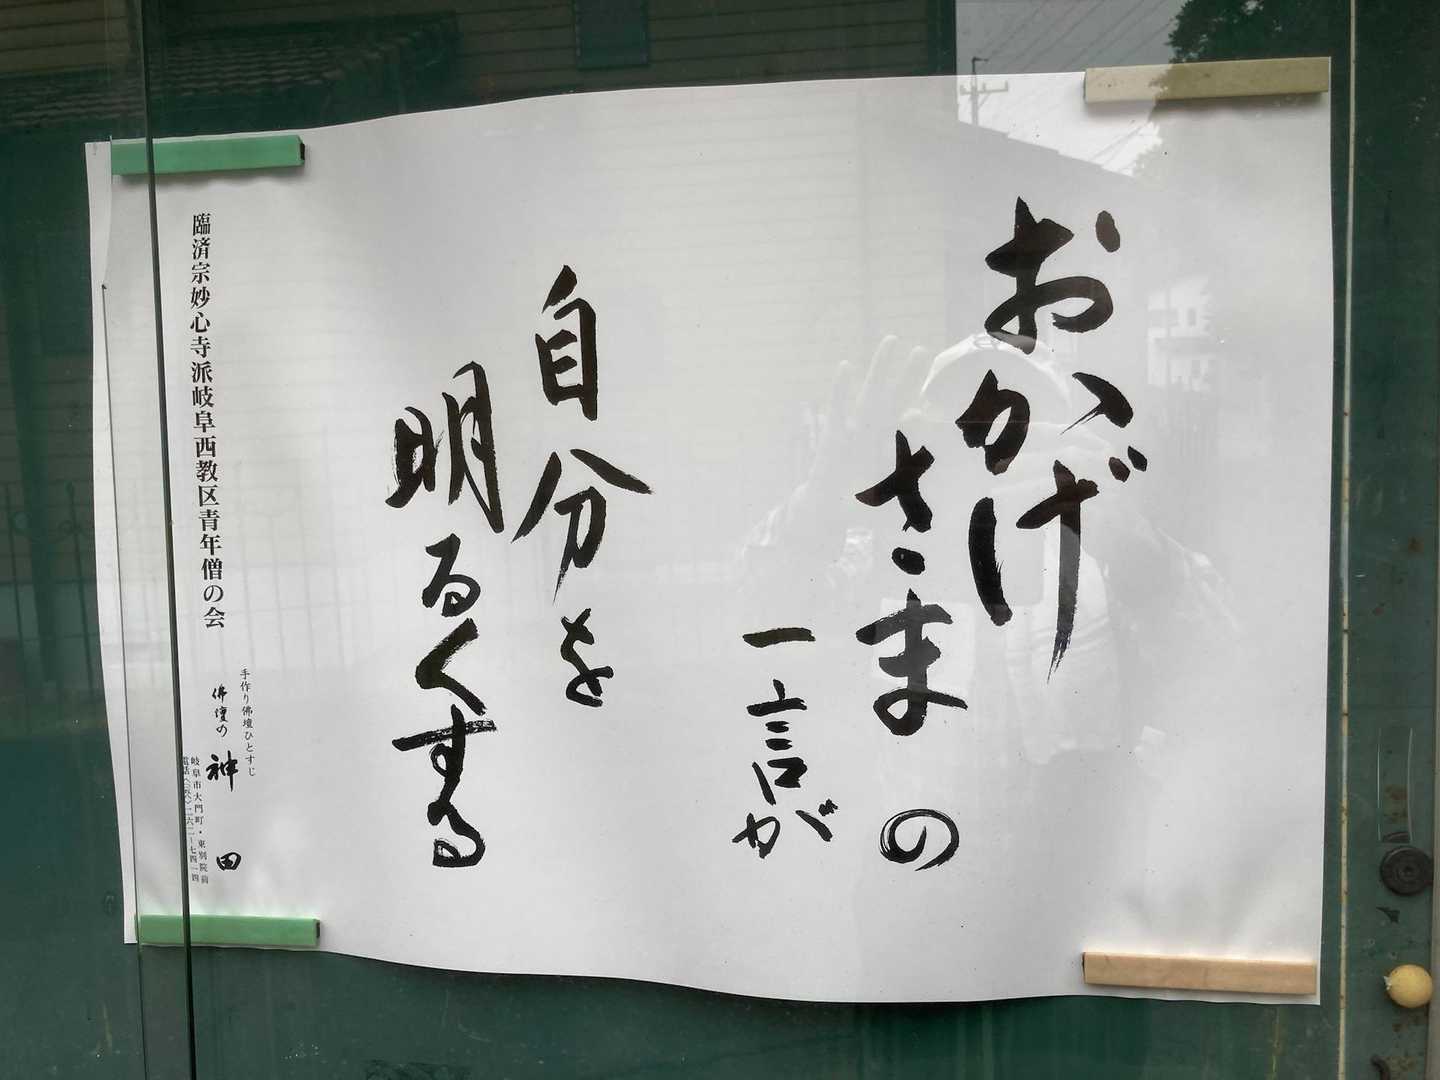 おかげ
さまの
一言が
自分を
明るくする
臨済宗妙心寺派岐阜西教区青年僧の会
手作り佛壇ひとすじ
佛壇の 神田
岐阜市大門町・東別院前
電話(〇五八)二六二-七四一四